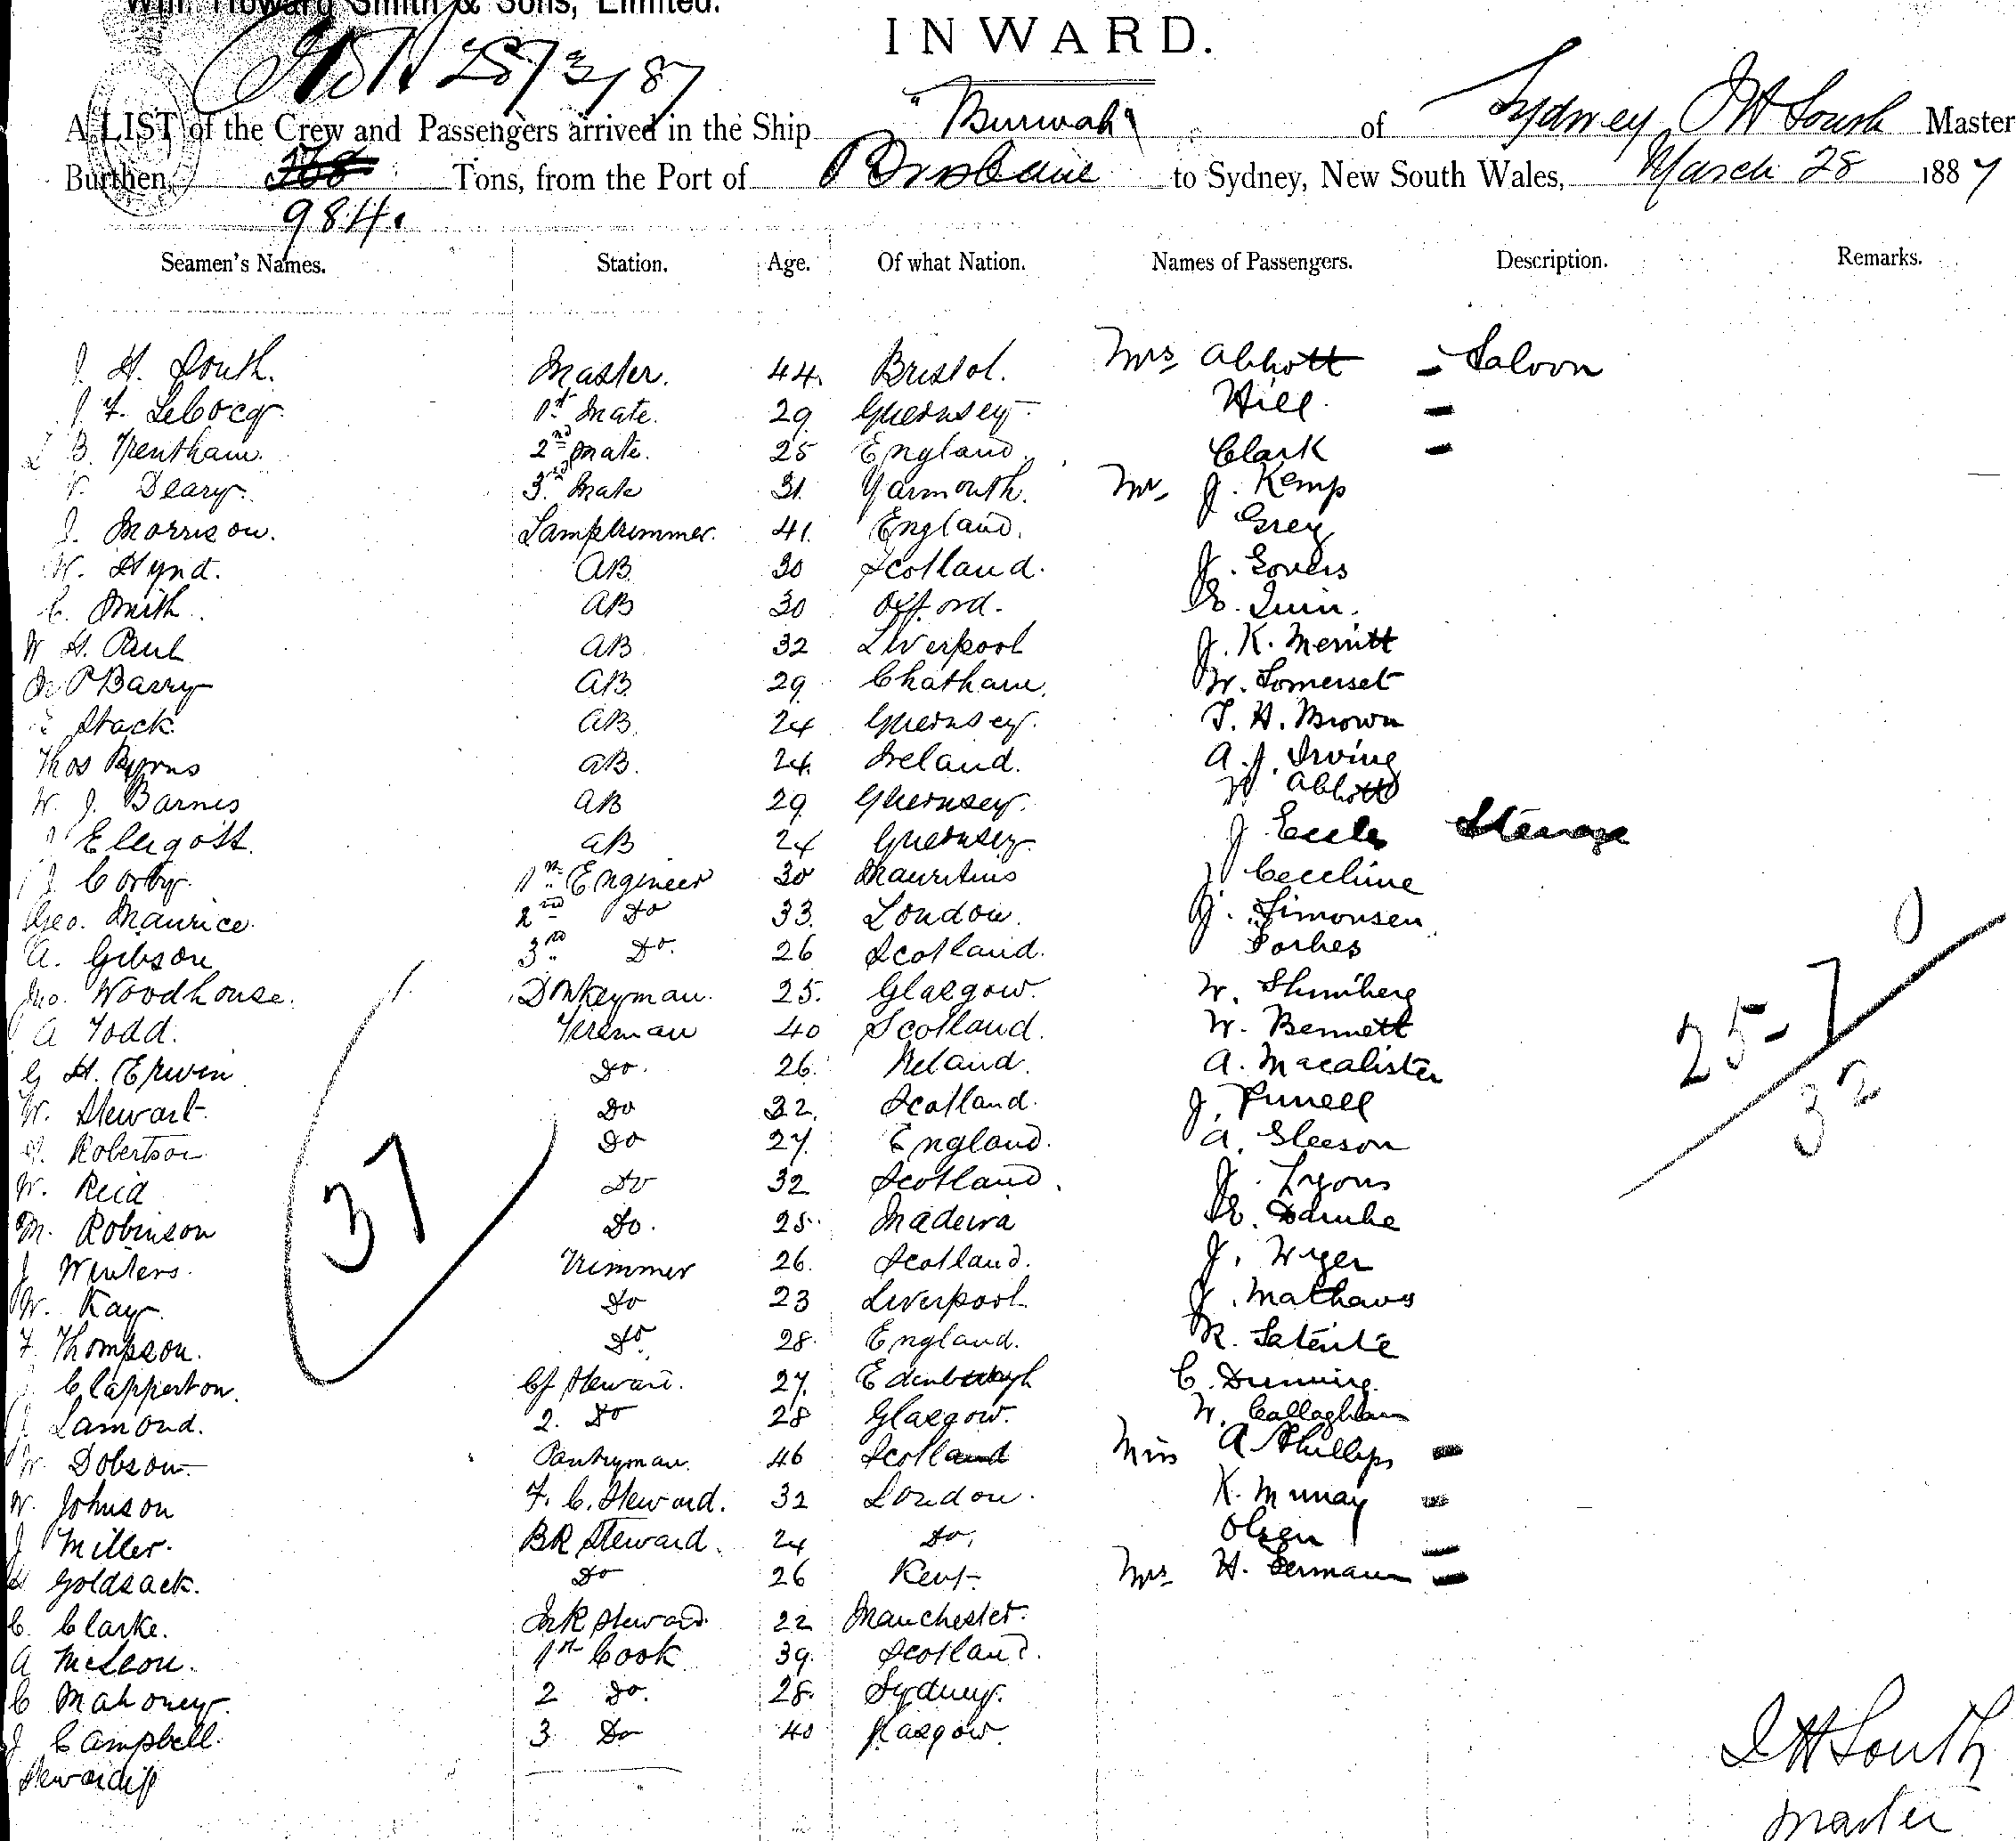 Wm. Howard Smith & Sons, Limited.
INWARD.
28/3/87
A LIST of the Crew and Passengers arrived in the Ship "Burwah" of Sydney J H South Master
Burthen, 984. Tons, from the Port of Brisbane to Sydney, New South Wales, March 28 1887
Seamen's Names. Station. Age. Of what Nation. Names of Passengers. Description. Remarks.
J. H. South. Master. 44. Bristol. Mrs Abbott - Saloon
J. F. LeCocq. 1st Mate. 29. Guernsey. Hill. -
B. Trentham. 2nd Mate. 25 England. Clark -
Deary. 3rd Mate 31. Yarmouth. Mr J. Kemp
J. Morrison. Lamptrimmer. 41. England. Grey
W. Hynd. AB. 30 Scotland. J. Govers
C. Smith. AB 30 Oxford. E. Quin.
W H. Paul AB. 32 Liverpool J. K. Merritt
P Barry AB. 29. Chatham. W. Somerset
Stack. AB. 24 Guernsey. T. H. Brown
Thos Byrns AB. 24. Ireland. A. J. Irving
W. J. Barnes AB 29. Guernsey. W. Abbott
Ellgott. AB 24 Guernsey. J. Eccles Steerage
J. Corby. 1st Engineer 30 Mauritius Cecchine
Geo. Maurice. 2nd Do 33. London. J. Simonsen
A. Gibson 3rd Do. 26 Scotland. Forbes
Jno. Woodhouse. Donkeyman. 25. Glasgow. W.
A Todd. Fireman 40 Scotland. W. Bennett
G H. Erwin Do. 26. Ireland. A. Macalister
W. Stewart. Do 32. Scotland. J. Purnell
Robertson Do 27. England. A. Gleeson
W. Reid Do 32 Scotland. J. Lyons
M. Robinson Do. 25. Madeira E.
J Winters. Trimmer 26. Scotland. J. Wyer
W. Kay. Do 23 Liverpool. J. Mathews
F. Thompson. Do. 28. England. R.
Clapperton. Cf Steward. 27. Edinburgh C. Dunning.
J. Lamond. 2. Do 28 Glasgow. W. Callaghan
W. Dobson. Pantryman. 46 Scotland Miss A Phillips -
W. Johnson F. C. Steward. 32 London. K. Murray -
J Miller. BR Steward. 24 Do. Olsen -
H Goldsack. Do 26 Kent. Mrs H. Germann -
C. Clarke. Steward. 22 Manchester.
A McLeod. 1st Cook 39. Scotland.
C Mahoney. 2 Do. 28. Sydney.
J Campbell. 3 Do 40 Glasgow.
Stewardess
37
25-7 0
32
J H South
Master